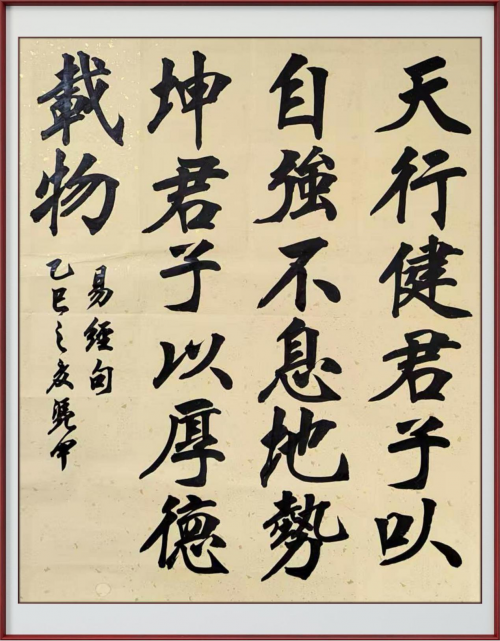 天行健君子以
自強不息地勢
坤君子以厚德
載物
易經句
乙巳之夏